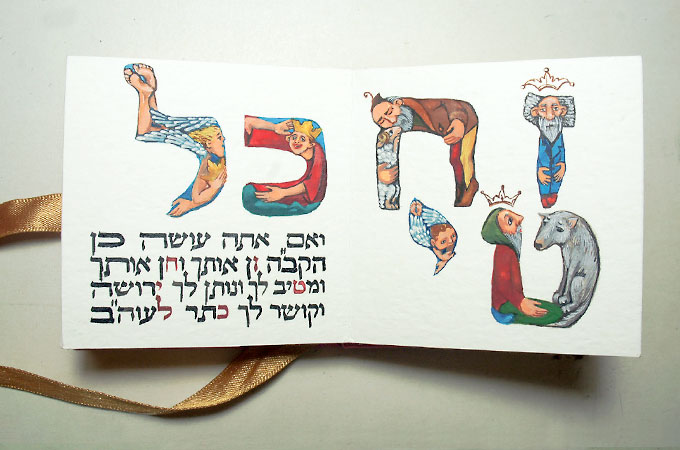 זח
טי
כל
ואם, אתה עושה כן
הקב"ה זן אותך וחן אותך
ומטיב לך ונותן לך ירושה
וקושר לך כתר לעוה"ב